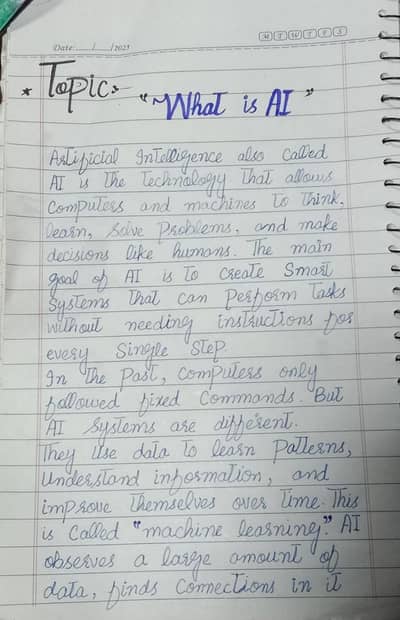 M T W T F S
Date:....../....../2025
* Topic:- "What is AI"
Artificial Intelligence also called
AI is the technology that allows
computers and machines to think,
learn, solve Problems, and make
decisions like humans. The main
goal of AI is to create Smart
Systems that can perform Tasks
without needing instructions for
every Single Step.
In the Past, computers only
followed fixed Commands. But
AI Systems are different.
They Use data to learn Patterns,
Understand information, and
improve themselves over time. This
is Called "machine learning." AI
observes a large amount of
data, finds Connections in it